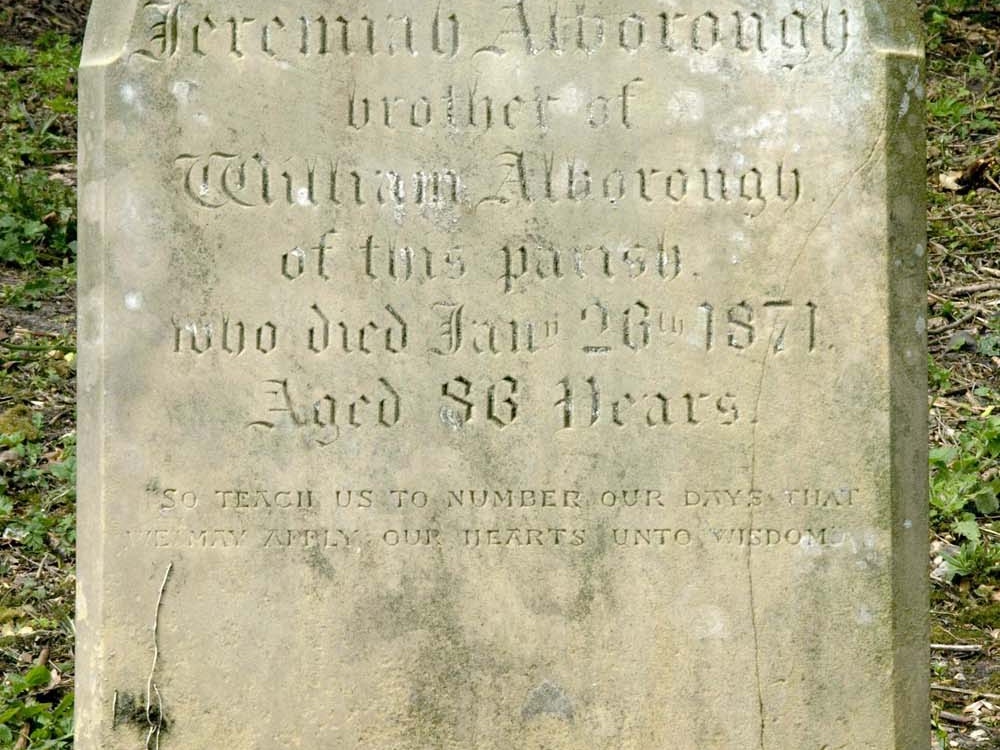 Jeremiah Alborough
brother of
William Alborough.
of this parish.
who died Jany 26th 1871.
Aged 86 Years.
"SO TEACH US TO NUMBER OUR DAYS THAT
WE MAY APPLY OUR HEARTS UNTO WISDOM"